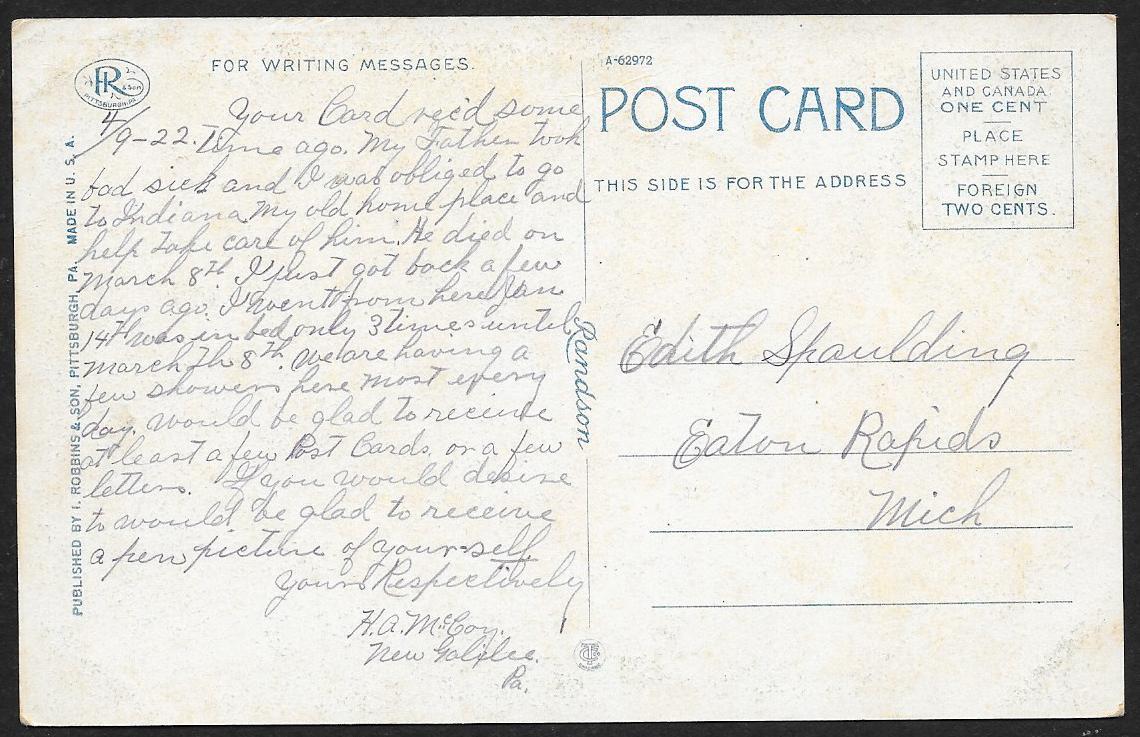 FOR WRITING MESSAGES.
R & Son
PITTSBURGH, PA.
4/9-22.
Your Card rec'd some
Time ago. My Father took
bad sick and I was obliged to go
to Indiana my old home place and
help take care of him. He died on
March 8th. I just got back a few
days ago. I went from here Jan
14th was in bed only 3 times until
March th 8th. We are having a
few showers here most every
day. would be glad to receive
at least a few Post Cards, or a few
letters. If you would desire
to would be glad to receive
a pen picture of your-self
Yours Respectively
H. A. McCoy.
New Galilee.
Pa.
PUBLISHED BY I. ROBBINS & SON, PITTSBURGH, PA. MADE IN U. S. A.
Randson
A-62972
POST CARD
THIS SIDE IS FOR THE ADDRESS
UNITED STATES
AND CANADA
ONE CENT
PLACE
STAMP HERE
FOREIGN
TWO CENTS.
Edith Spaulding
Eaton Rapids
Mich